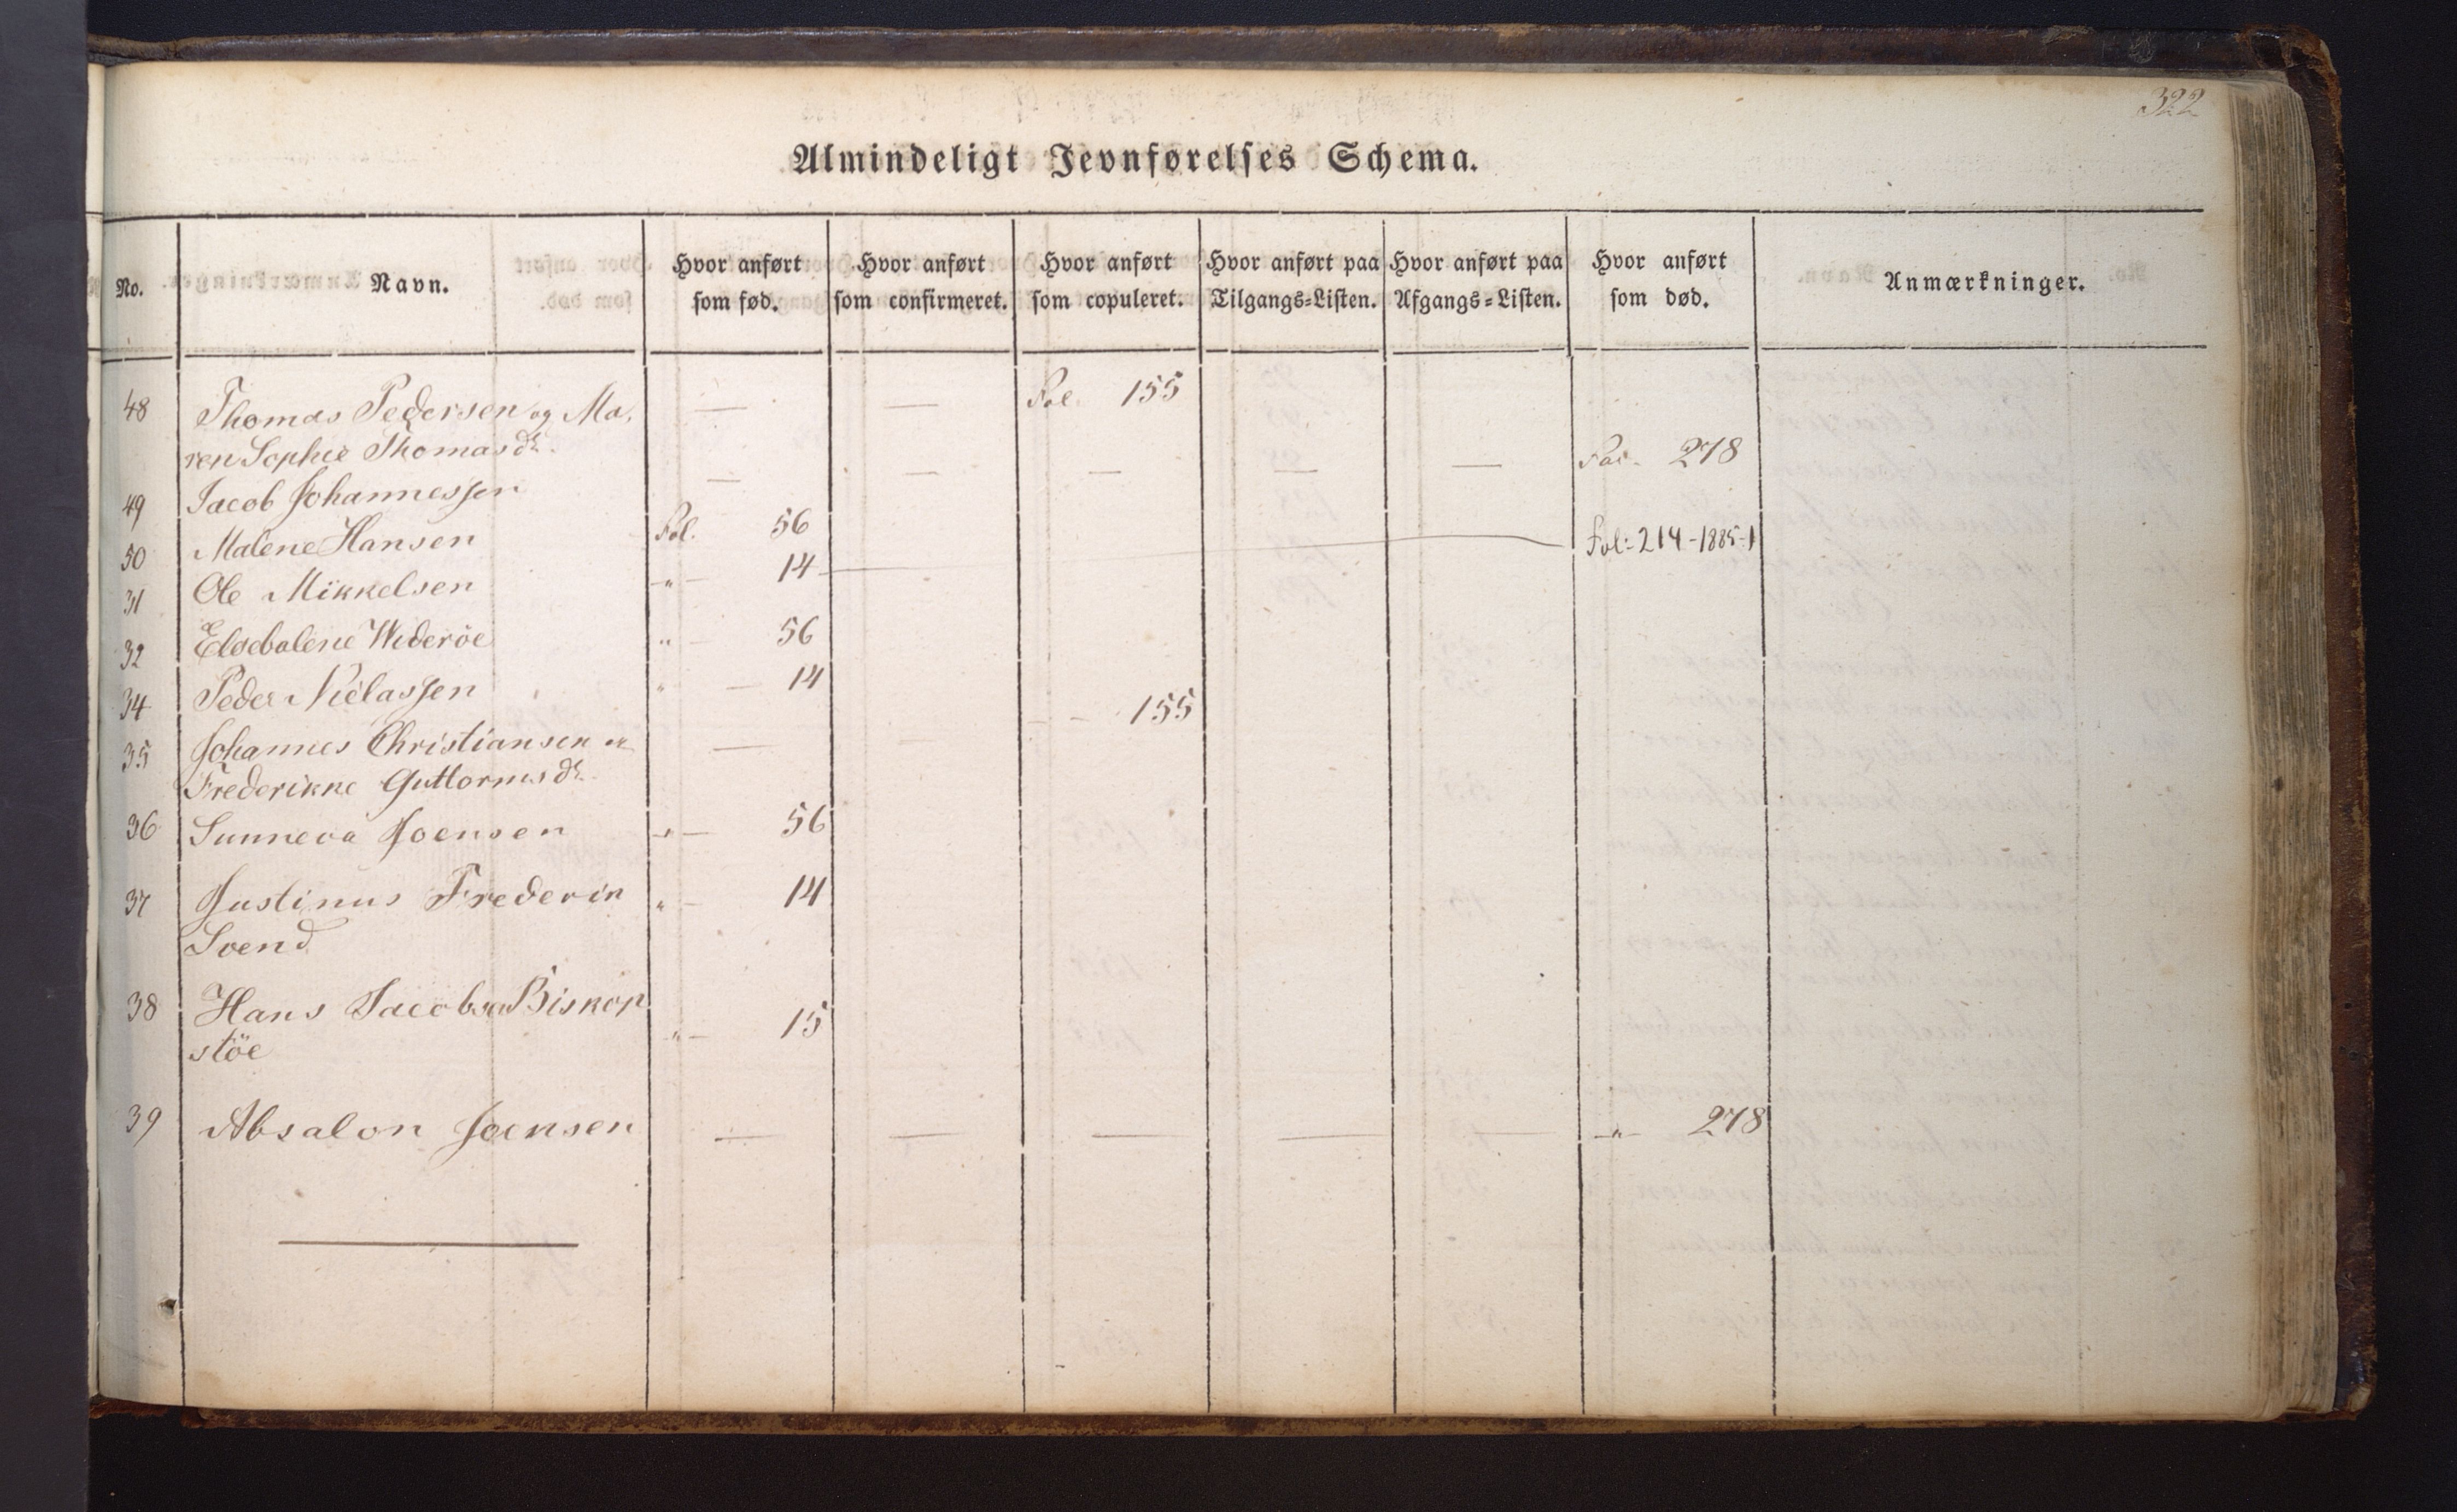 322
Almindeligt Jevnførelses Schema.
No. Navn. Hvor anført som fød. Hvor anført som confirmeret. Hvor anført som copuleret. Hvor anført paa Tilgangs-Listen. Hvor anført paa Afgangs-Listen. Hvor anført som død. Anmærkninger.
48 Thomas Pedersen og Ma- — — Fol. 155
ren Sophie Thomasdr.
49 Jacob Johannessen — — — — — Fol. 278
50 Malene Hansen Fol. 56
31 Ole Mikkelsen -"- 14 Fol: 214-1885-1
32 Elsebalene Wideröe " - 56
34 Peder Nielassen " - 14
35 Johannes Christiansen — — - - 155
Frederikke Guttormsdr.
36 Sunneva Joensen -"- 56
37 Justinus Frederik " - 14
Svend
38 Hans Jacobsen Biskop " - 15
stöe
39 Absalon Joensen — — — — — -"- 278